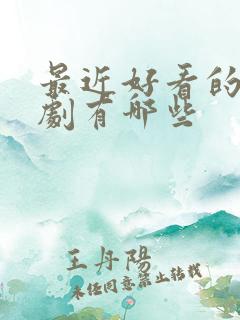 最近好看的
劇有哪些
王丹陽
未经同意禁止转载